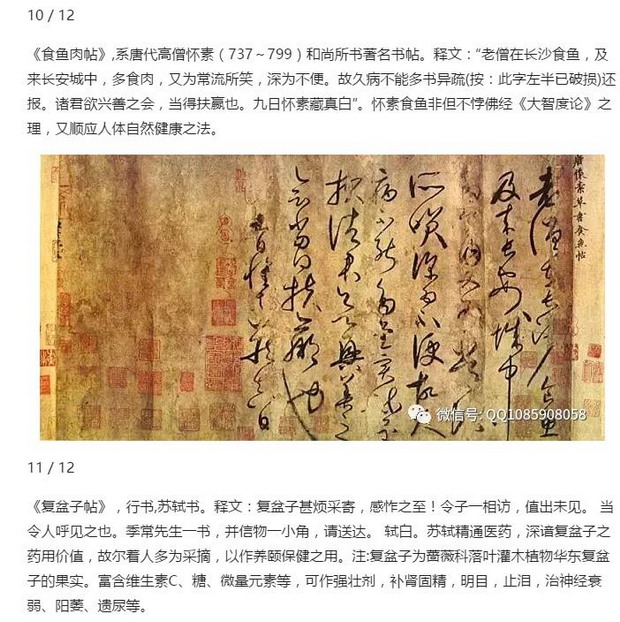 10 / 12
《食鱼肉帖》,系唐代高僧怀素（737～799）和尚所书著名书帖。释文：“老僧在长沙食鱼，及
来长安城中，多食肉，又为常流所笑，深为不便。故久病不能多书异疏(按：此字左半已破损)还
报。诸君欲兴善之会，当得扶赢也。九日怀素藏真白”。怀素食鱼非但不悖佛经《大智度论》之
理，又顺应人体自然健康之法。
唐懷素草書食魚帖
老僧在長沙食魚
及来長安城中
多食肉又為常流
所咲深為不便故久
病不能多書異疏還
報諸君欲興善之
會當得扶羸也
九日懷素藏真白
微信号: QQ1085908058
11 / 12
《复盆子帖》，行书,苏轼书。释文：复盆子甚烦采寄，感怍之至！令子一相访，值出未见。 当
令人呼见之也。季常先生一书，并信物一小角，请送达。 轼白。苏轼精通医药，深谙复盆子之
药用价值，故尔着人多为采摘，以作养颐保健之用。注:复盆子为蔷薇科落叶灌木植物华东复盆
子的果实。富含维生素C、糖、微量元素等，可作强壮剂，补肾固精，明目，止泪，治神经衰
弱、阳萎、遗尿等。